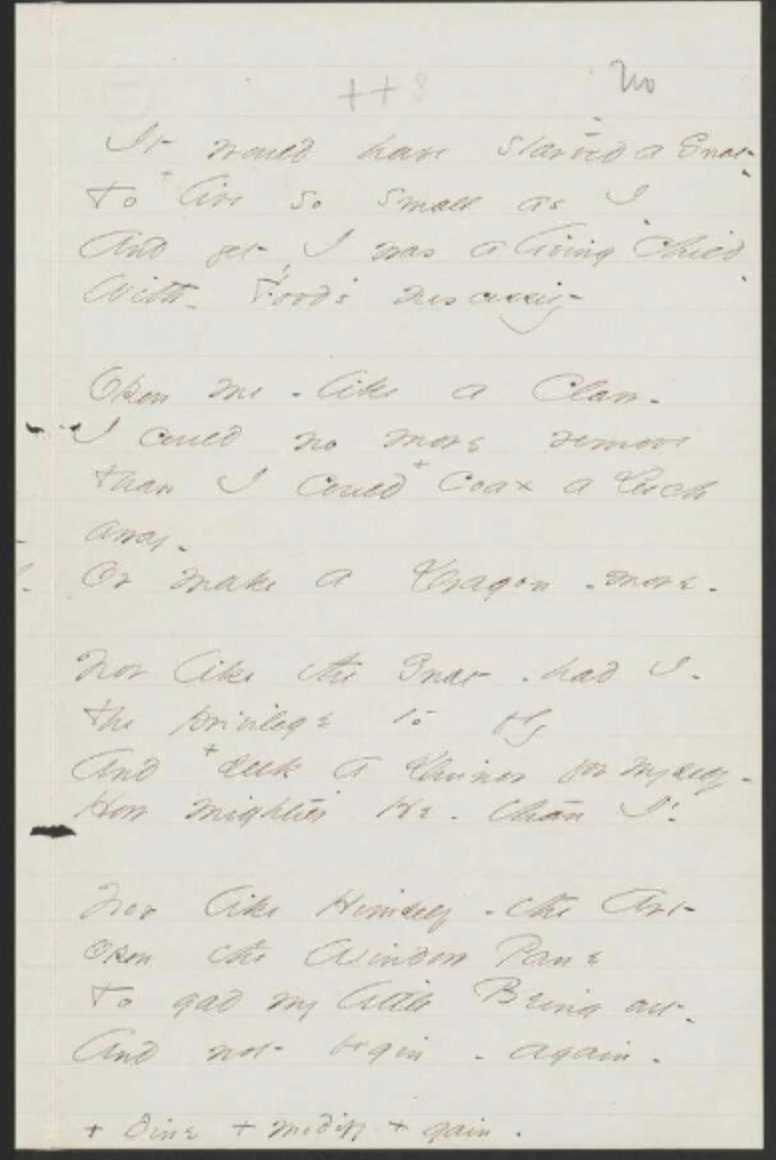 ++ 8 no
It would have starved a Gnat -
To + live so small as I -
And yet, I was a living Child -
With Food's necessity
Upon me - like a Claw -
I could no more remove
Than I could + coax a Leech
away -
Or make a Dragon - move -
Nor like the Gnat - had I -
The privilege to fly
And + seek a Dinner for myself -
How mightier He - than I!
Nor like Himself - the Art
Upon the Window Pane
To gad my little Being out -
And not begin - again -
+ Dine + modify + gain -